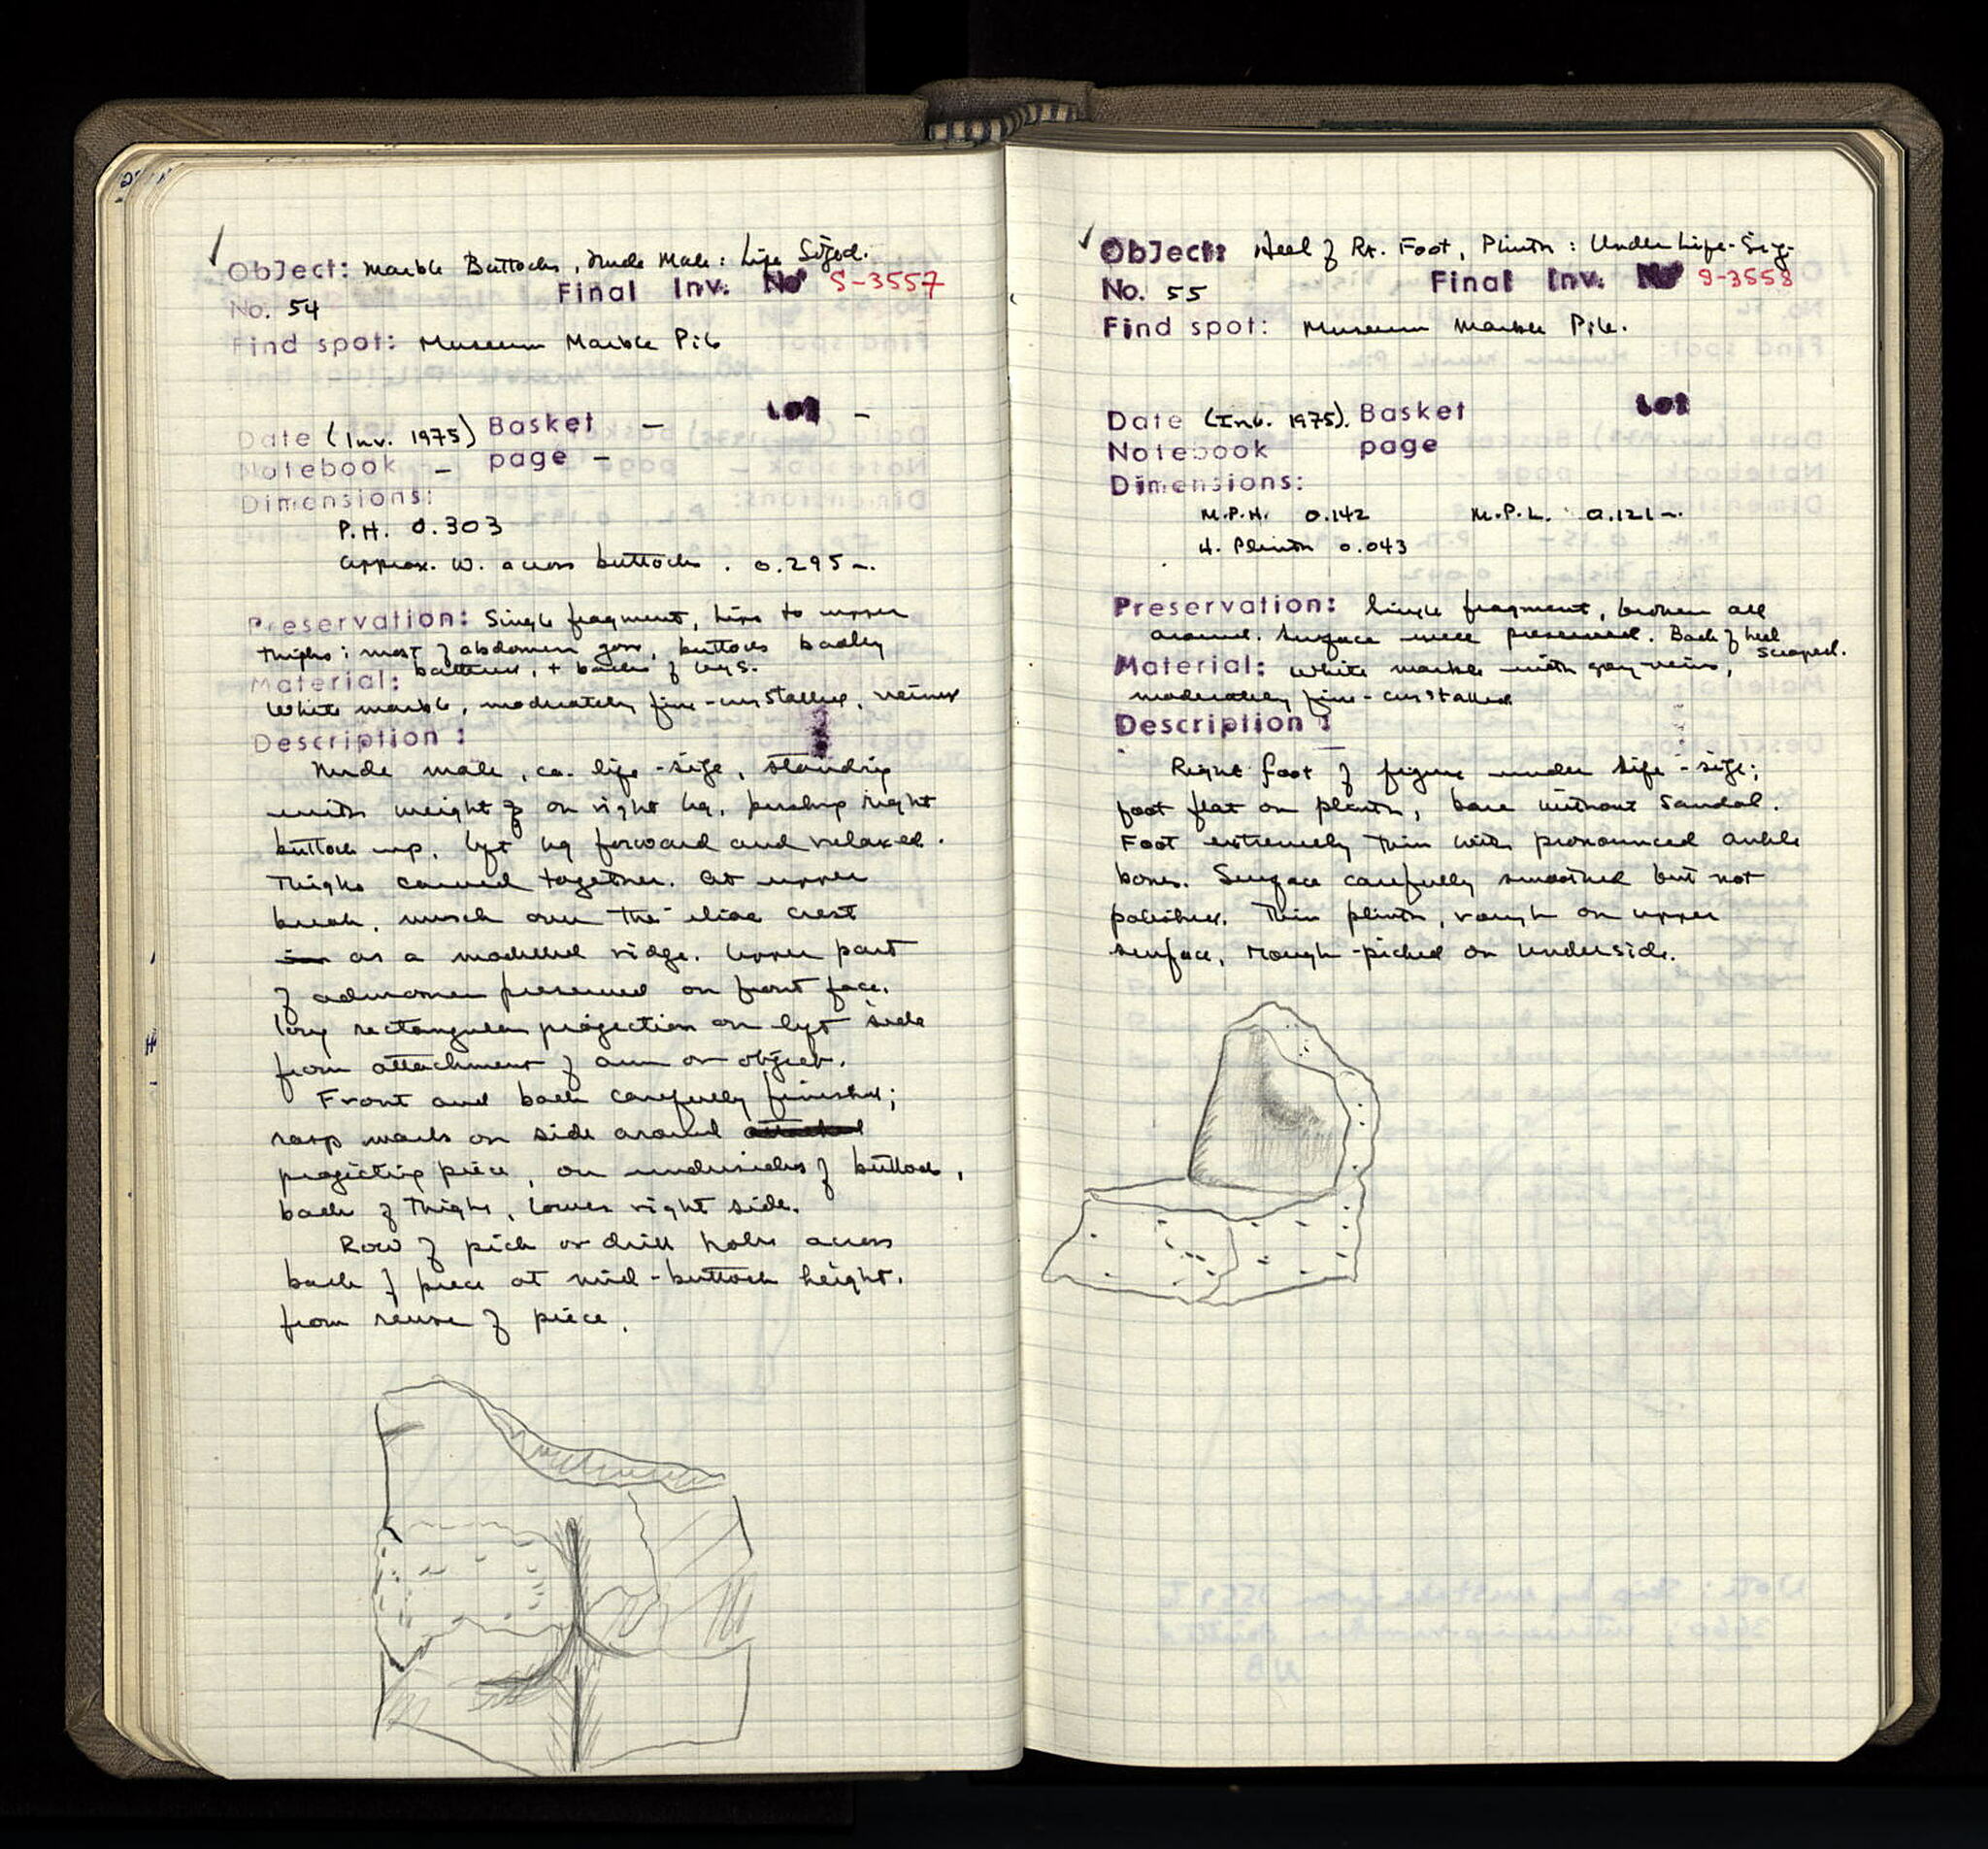 Object: Marble Buttocks, Nude Male: Life Sized.
No. 54 Final Inv. No S-3557
Find spot: Museum Marble Pile
Date (Inv. 1975) Basket — Lot —
Notebook — page —
Dimensions:
P.H. 0.303
Approx. W. across buttocks. 0.295 m.
Preservation: Single fragment, hips to upper
thighs; most of abdomen gone, buttocks badly
battered, + backs of legs.
Material:
White marble, moderately fine-crystalled,
Description:
Nude male, ca. life-size, standing
with weight on right leg, pushing right
buttock up, left leg forward and relaxed.
Thighs carved together. At upper
break, muscle over the iliac crest
as a modelled ridge. Upper part
of abdomen preserved on front face.
Long rectangular projection on left side
from attachment of arm or object.
Front and back carefully finished;
rasp marks on side around attached
projecting piece, on undersides of buttocks,
back of thighs, lower right side.
Row of pick or drill holes across
back of piece at mid-buttock height.
from reuse of piece.
Object: Heel of Rt. Foot, Plinth: Under Life-Size
No. 55 Final Inv. No S-3558
Find spot: Museum Marble Pile.
Date (Inv. 1975). Basket Lot
Notebook page
Dimensions:
M.P.H. 0.142 M.P.L. 0.121 m.
H. Plinth 0.043
Preservation: Single fragment, broken all
around. Surface well preserved. Back of heel
scraped.
Material: White marble with gray veins,
moderately fine-crystalled
Description:
Right foot of figure under life-size;
foot flat on plinth, bare without sandal.
Foot extremely thin with pronounced ankle
bones. Surface carefully smoothed but not
polished. Thin plinth, rough on upper
surface, rough-picked on underside.